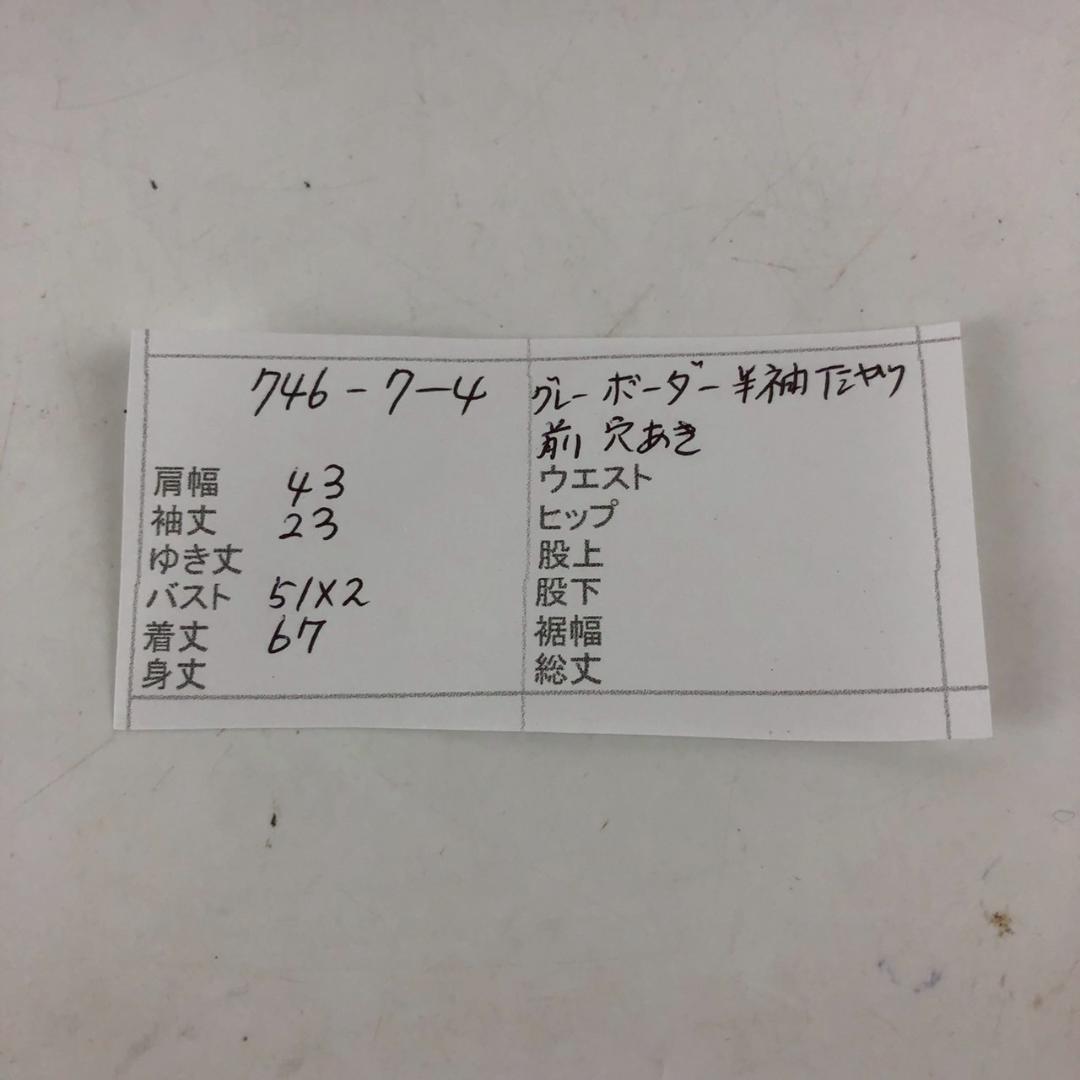 746-7-4
肩幅 43
袖丈 23
ゆき丈
バスト 51X2
着丈 67
身丈
グレーボーダー半袖Tシャツ
前 穴あき
ウエスト
ヒップ
股上
股下
裾幅
総丈